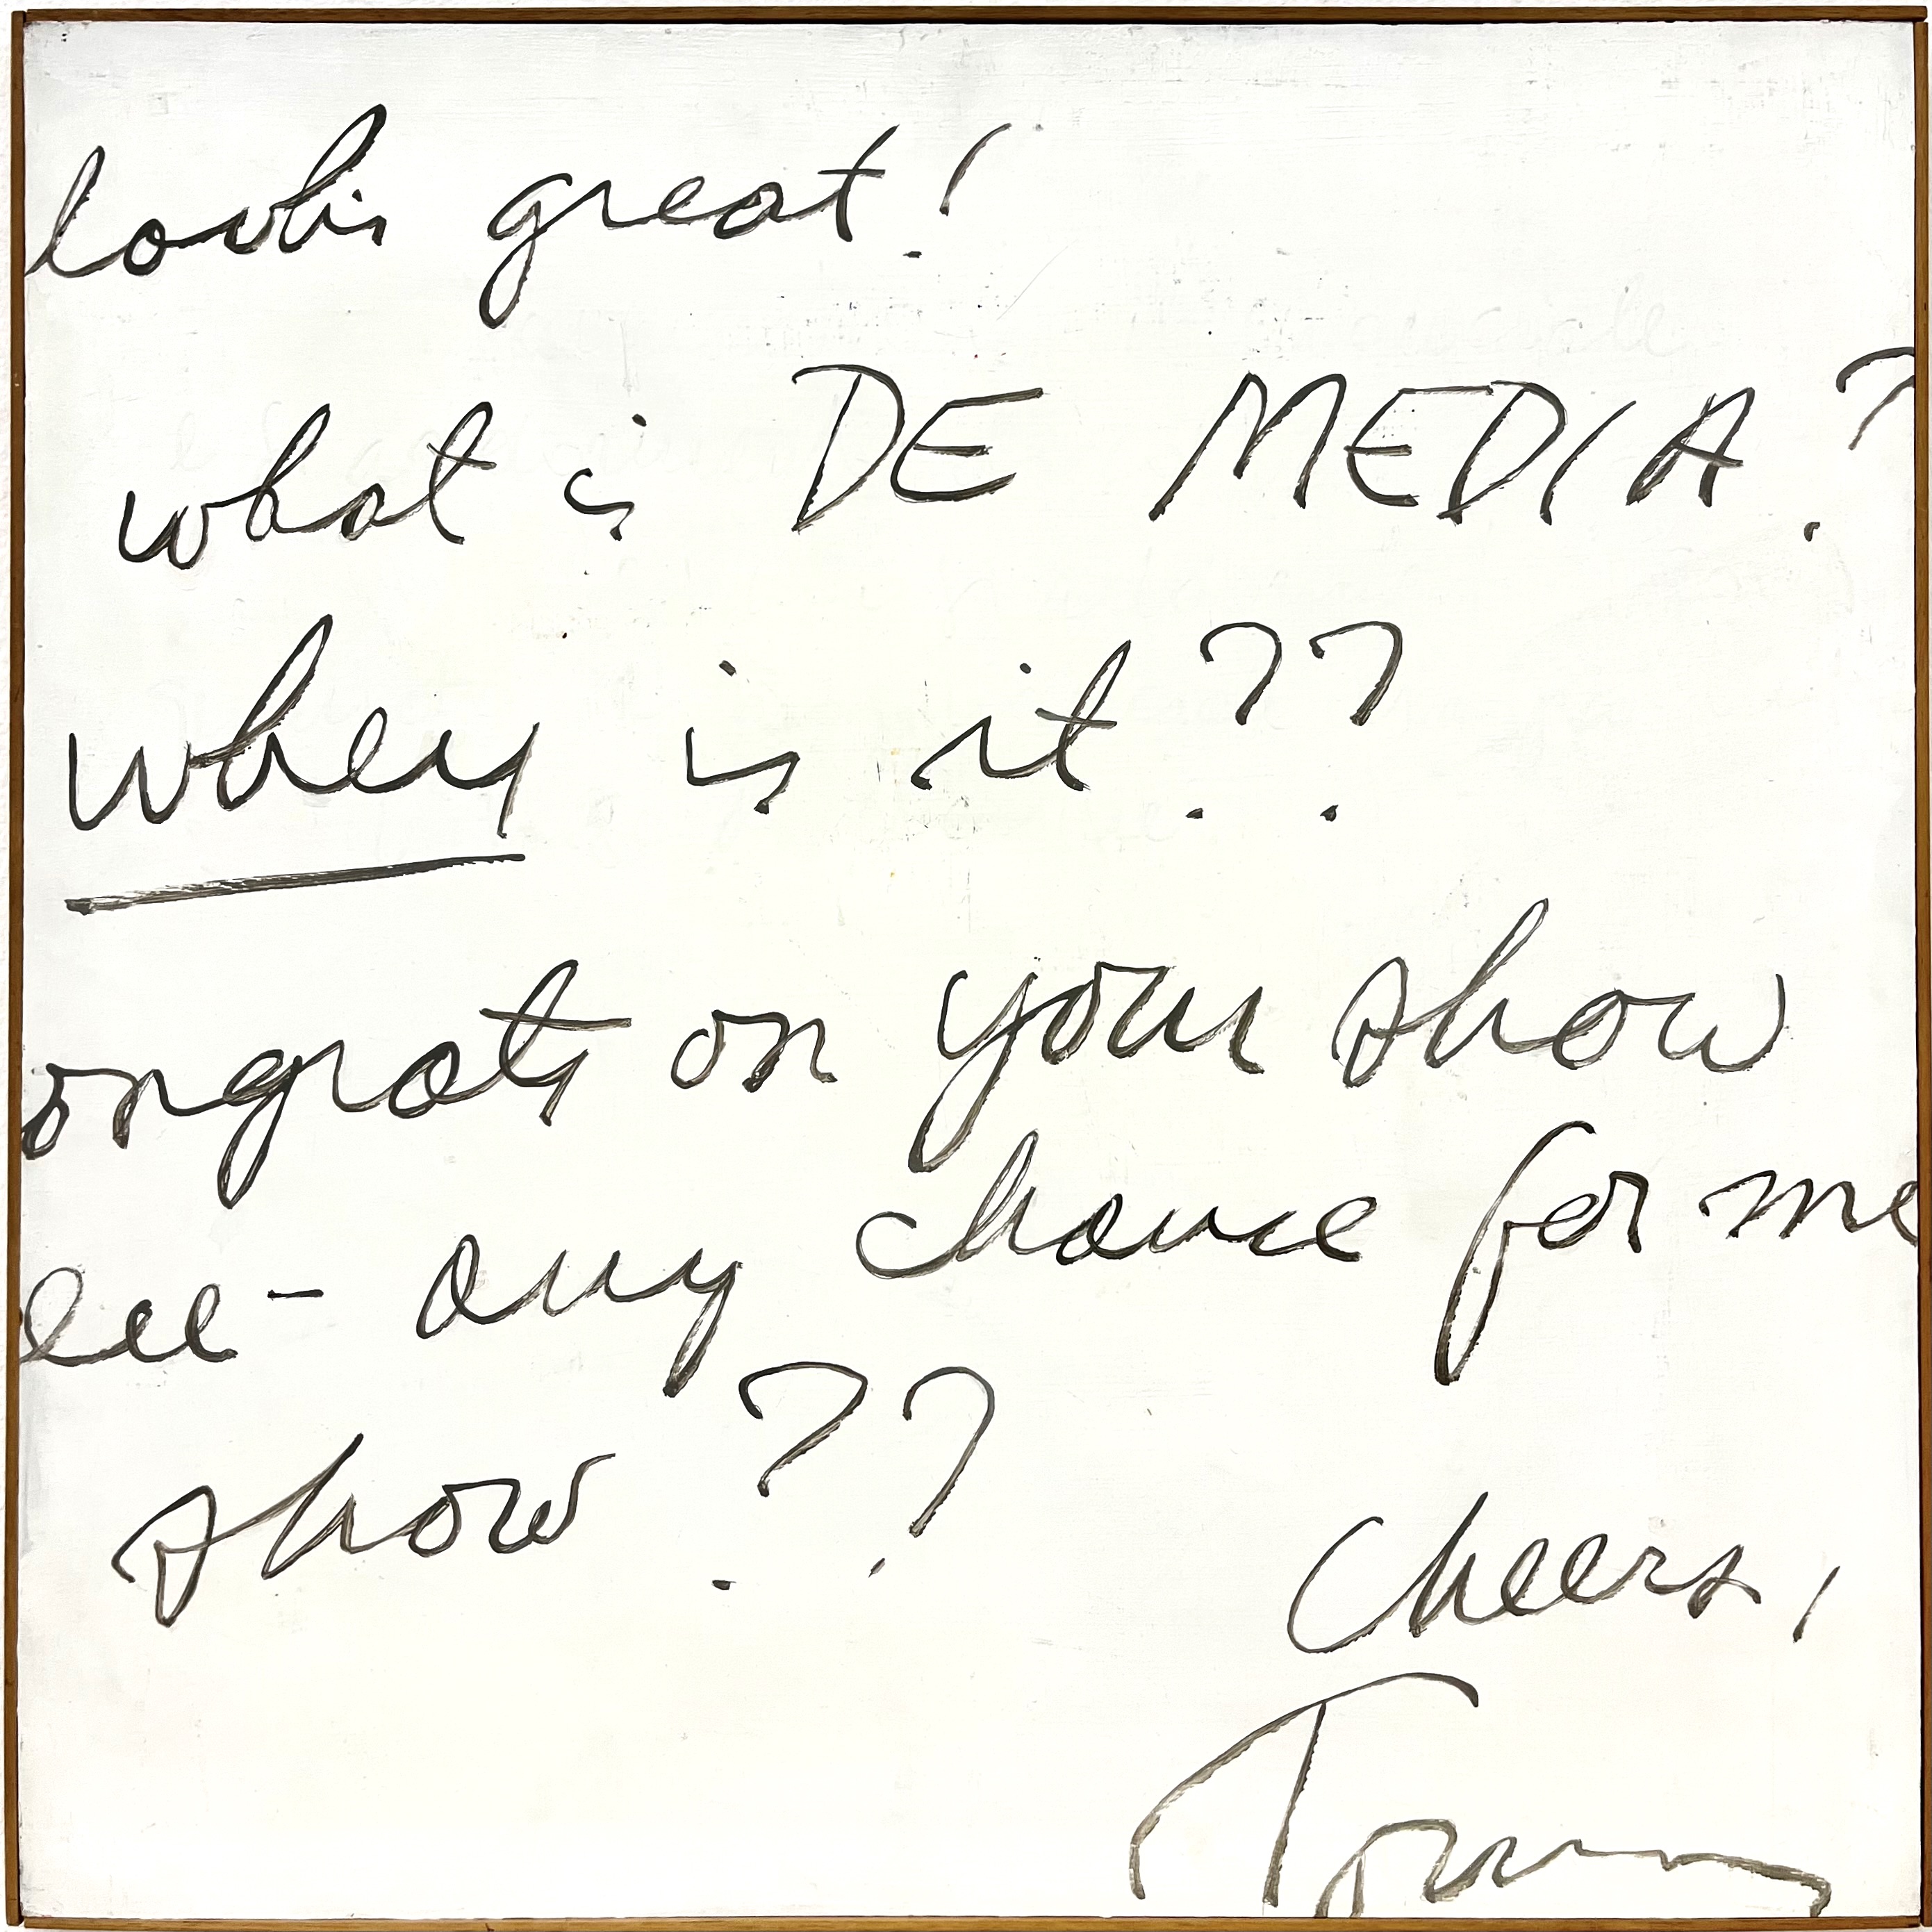 looks great!
what is DE MEDIA?
when is it??
ongrats on your show
lee - any chance for me
show??
Cheers,